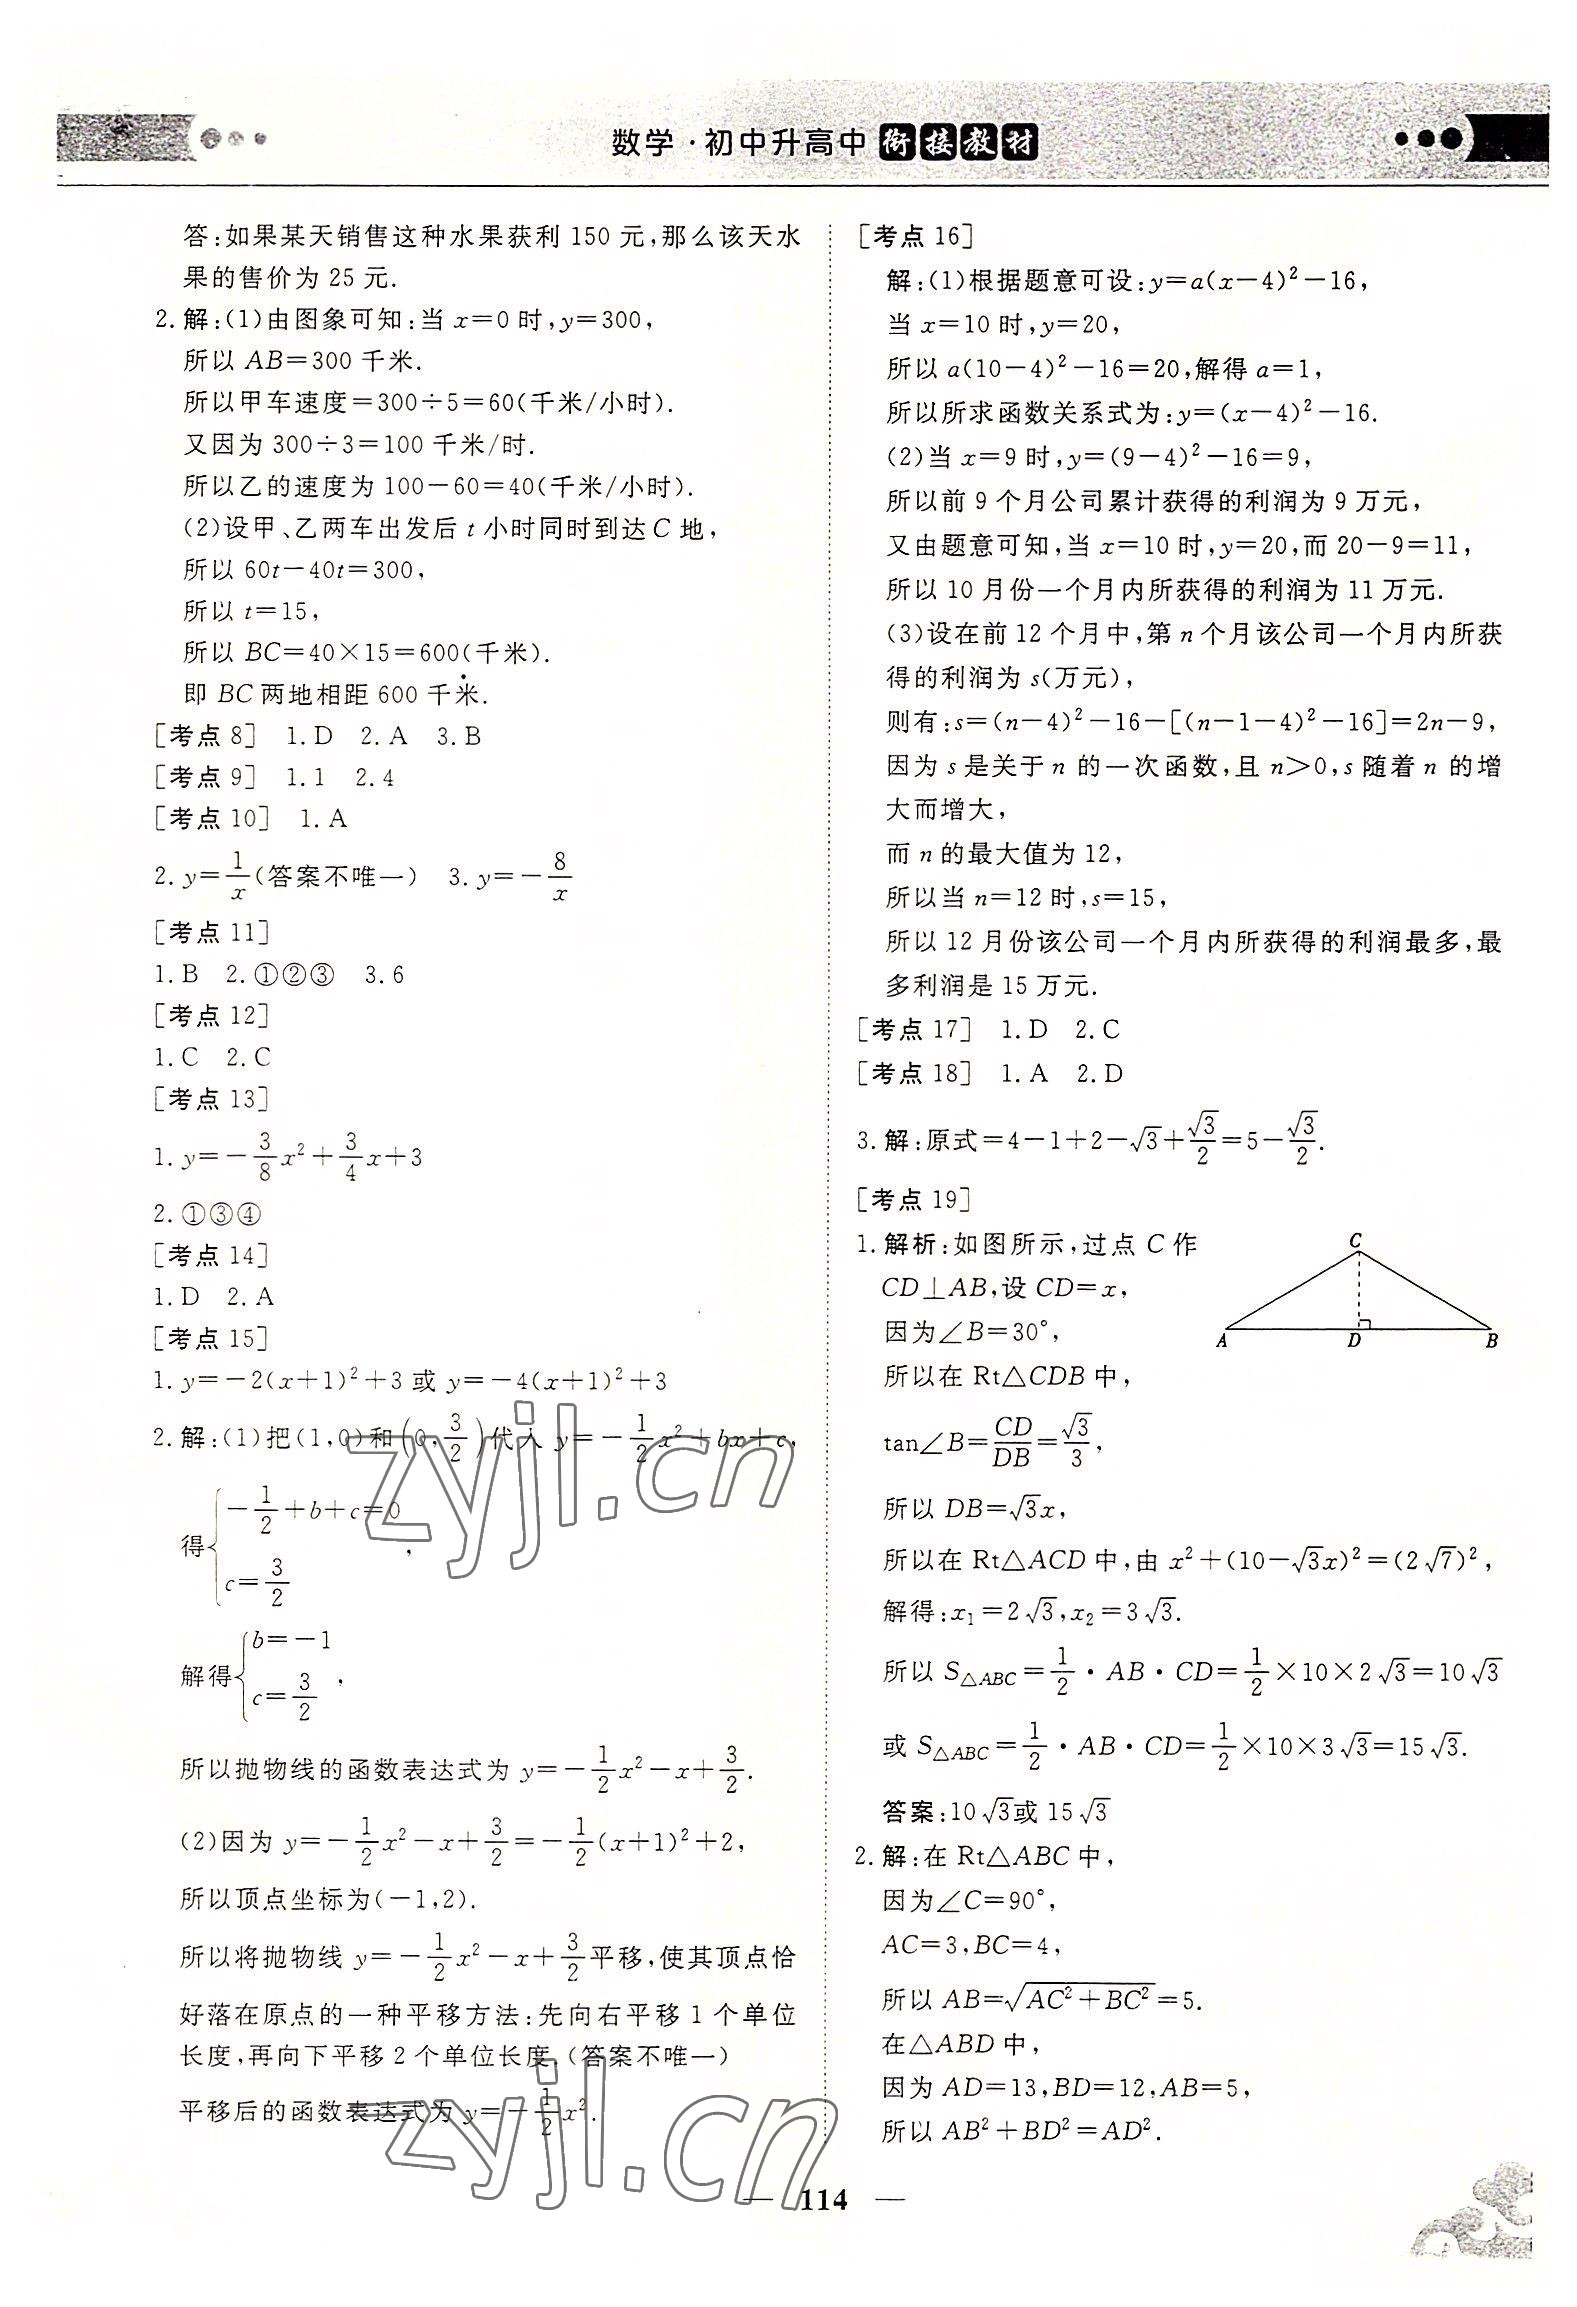 数学·初中升高中衔接教材
答:如果某天销售这种水果获利 150 元,那么该天水
果的售价为 25 元.
2.解:(1)由图象可知:当 x=0 时,y=300,
所以 AB=300 千米.
所以甲车速度=300÷5=60(千米/小时).
又因为 300÷3=100 千米/时.
所以乙的速度为 100-60=40(千米/小时).
(2)设甲、乙两车出发后 t 小时同时到达 C 地,
所以 60t-40t=300,
所以 t=15,
所以 BC=40×15=600(千米).
即 BC 两地相距 600 千米.
[考点 8] 1.D 2.A 3.B
[考点 9] 1.1 2.4
[考点 10] 1.A
2.y=1/x(答案不唯一) 3.y=-8/x
[考点 11]
1.B 2.①②③ 3.6
[考点 12]
1.C 2.C
[考点 13]
1.y=-3/8x²+3/4x+3
2.①③④
[考点 14]
1.D 2.A
[考点 15]
1.y=-2(x+1)²+3 或 y=-4(x+1)²+3
2.解:(1)把(1,0)和(0,3/2)代入 y=-1/2x²+bx+c,
得{-1/2+b+c=0
c=3/2,
解得{b=-1
c=3/2,
所以抛物线的函数表达式为 y=-1/2x²-x+3/2.
(2)因为 y=-1/2x²-x+3/2=-1/2(x+1)²+2,
所以顶点坐标为(-1,2).
所以将抛物线 y=-1/2x²-x+3/2平移,使其顶点恰
好落在原点的一种平移方法:先向右平移 1 个单位
长度,再向下平移 2 个单位长度.(答案不唯一)
平移后的函数表达式为 y=-1/2x².
[考点 16]
解:(1)根据题意可设:y=a(x-4)²-16,
当 x=10 时,y=20,
所以 a(10-4)²-16=20,解得 a=1,
所以所求函数关系式为:y=(x-4)²-16.
(2)当 x=9 时,y=(9-4)²-16=9,
所以前 9 个月公司累计获得的利润为 9 万元,
又由题意可知,当 x=10 时,y=20,而 20-9=11,
所以 10 月份一个月内所获得的利润为 11 万元.
(3)设在前 12 个月中,第 n 个月该公司一个月内所获
得的利润为 s(万元),
则有:s=(n-4)²-16-[(n-1-4)²-16]=2n-9,
因为 s 是关于 n 的一次函数,且 n>0,s 随着 n 的增
大而增大,
而 n 的最大值为 12,
所以当 n=12 时,s=15,
所以 12 月份该公司一个月内所获得的利润最多,最
多利润是 15 万元.
[考点 17] 1.D 2.C
[考点 18] 1.A 2.D
3.解:原式=4-1+2-√3+√3/2=5-√3/2.
[考点 19]
1.解析:如图所示,过点 C 作
CD⊥AB,设 CD=x,
因为∠B=30°,
所以在 Rt△CDB 中,
C
A D B
tan∠B=CD/DB=√3/3,
所以 DB=√3x,
所以在 Rt△ACD 中,由 x²+(10-√3x)²=(2√7)²,
解得:x₁=2√3,x₂=3√3.
所以 S△ABC=1/2·AB·CD=1/2×10×2√3=10√3
或 S△ABC=1/2·AB·CD=1/2×10×3√3=15√3.
答案:10√3或 15√3
2.解:在 Rt△ABC 中,
因为∠C=90°,
AC=3,BC=4,
所以 AB=√(AC²+BC²)=5.
在△ABD 中,
因为 AD=13,BD=12,AB=5,
所以 AB²+BD²=AD².
— 114 —
zyjl.cn
zyjl.cn